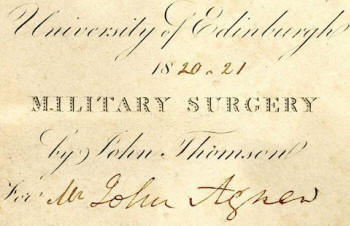 University of Edinburgh
1820.21
MILITARY SURGERY
by John Thomson
For Mr John Agnew